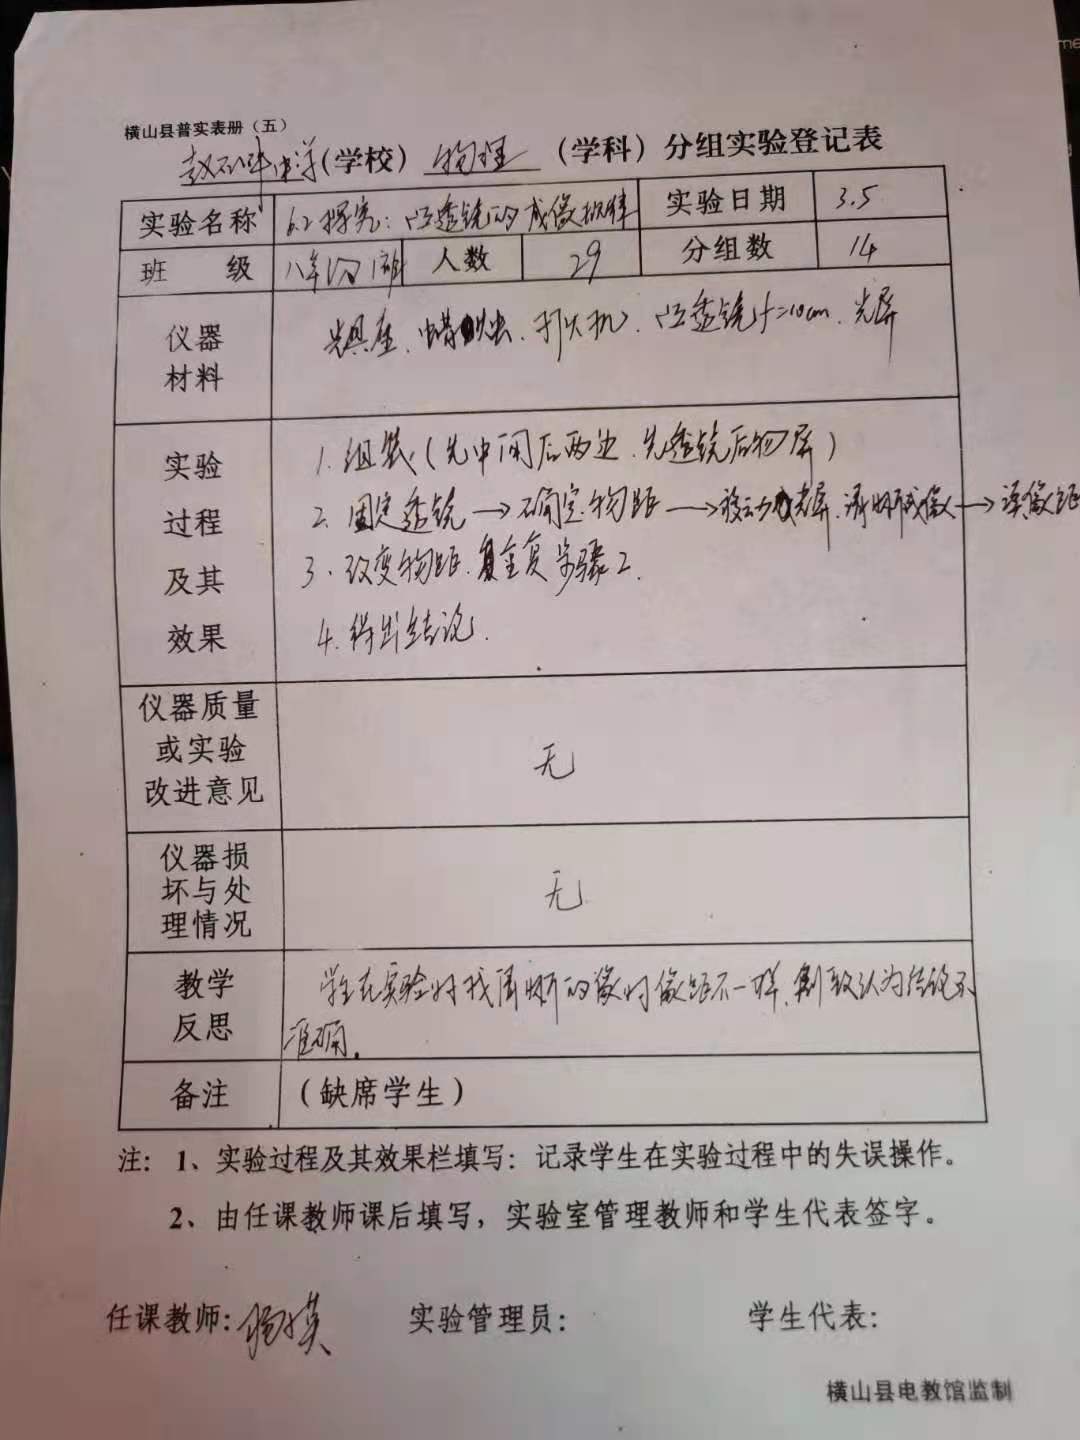 横山县普实表册（五）
赵石畔中学(学校) 物理 (学科) 分组实验登记表
实验名称 6.2探究:凸透镜的成像规律 实验日期 3.5
班 级 八年级 人数 29 分组数 14
仪器材料 光具座、蜡烛、打火机、凸透镜f=10cm、光屏
实验
过程
及其
效果
1. 组装(先中间后两边、先透镜后物屏)
2. 固定透镜→确定物距→移动光屏、清晰成像→读像距
3. 改变物距、重复步骤2.
4. 得出结论.
仪器质量
或实验
改进意见
无
仪器损
坏与处
理情况
无
教学
反思
学生在实验时找清晰的像时像距不一样,导致认为结论不
准确.
备注 (缺席学生)
注: 1、实验过程及其效果栏填写: 记录学生在实验过程中的失误操作。
2、由任课教师课后填写，实验室管理教师和学生代表签字。
任课教师: 实验管理员: 学生代表:
横山县电教馆监制